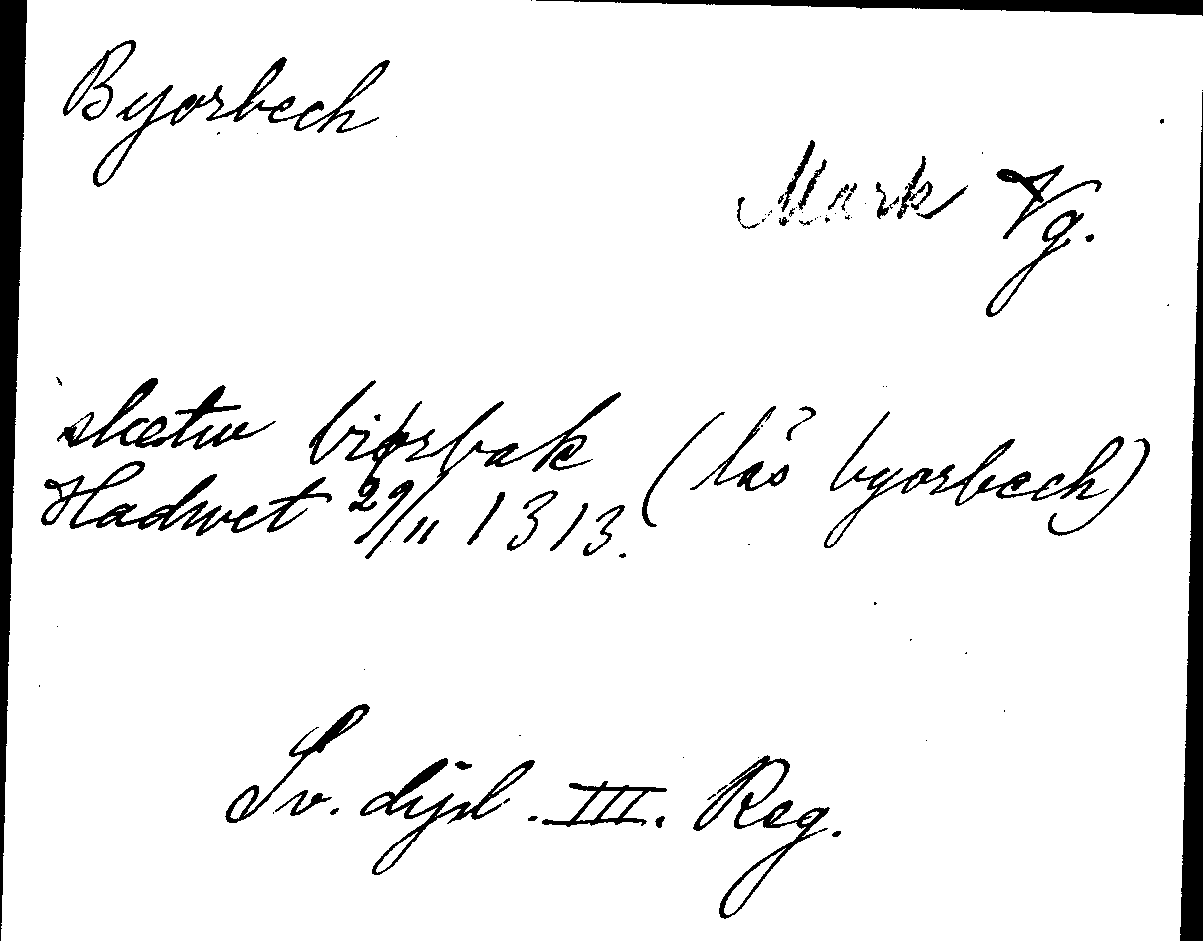 Byorbech
Mark Vg.
slætw biorbak (läs byorbech)
Hadwet 29/11 1313.
Sv. dipl. III. Reg.